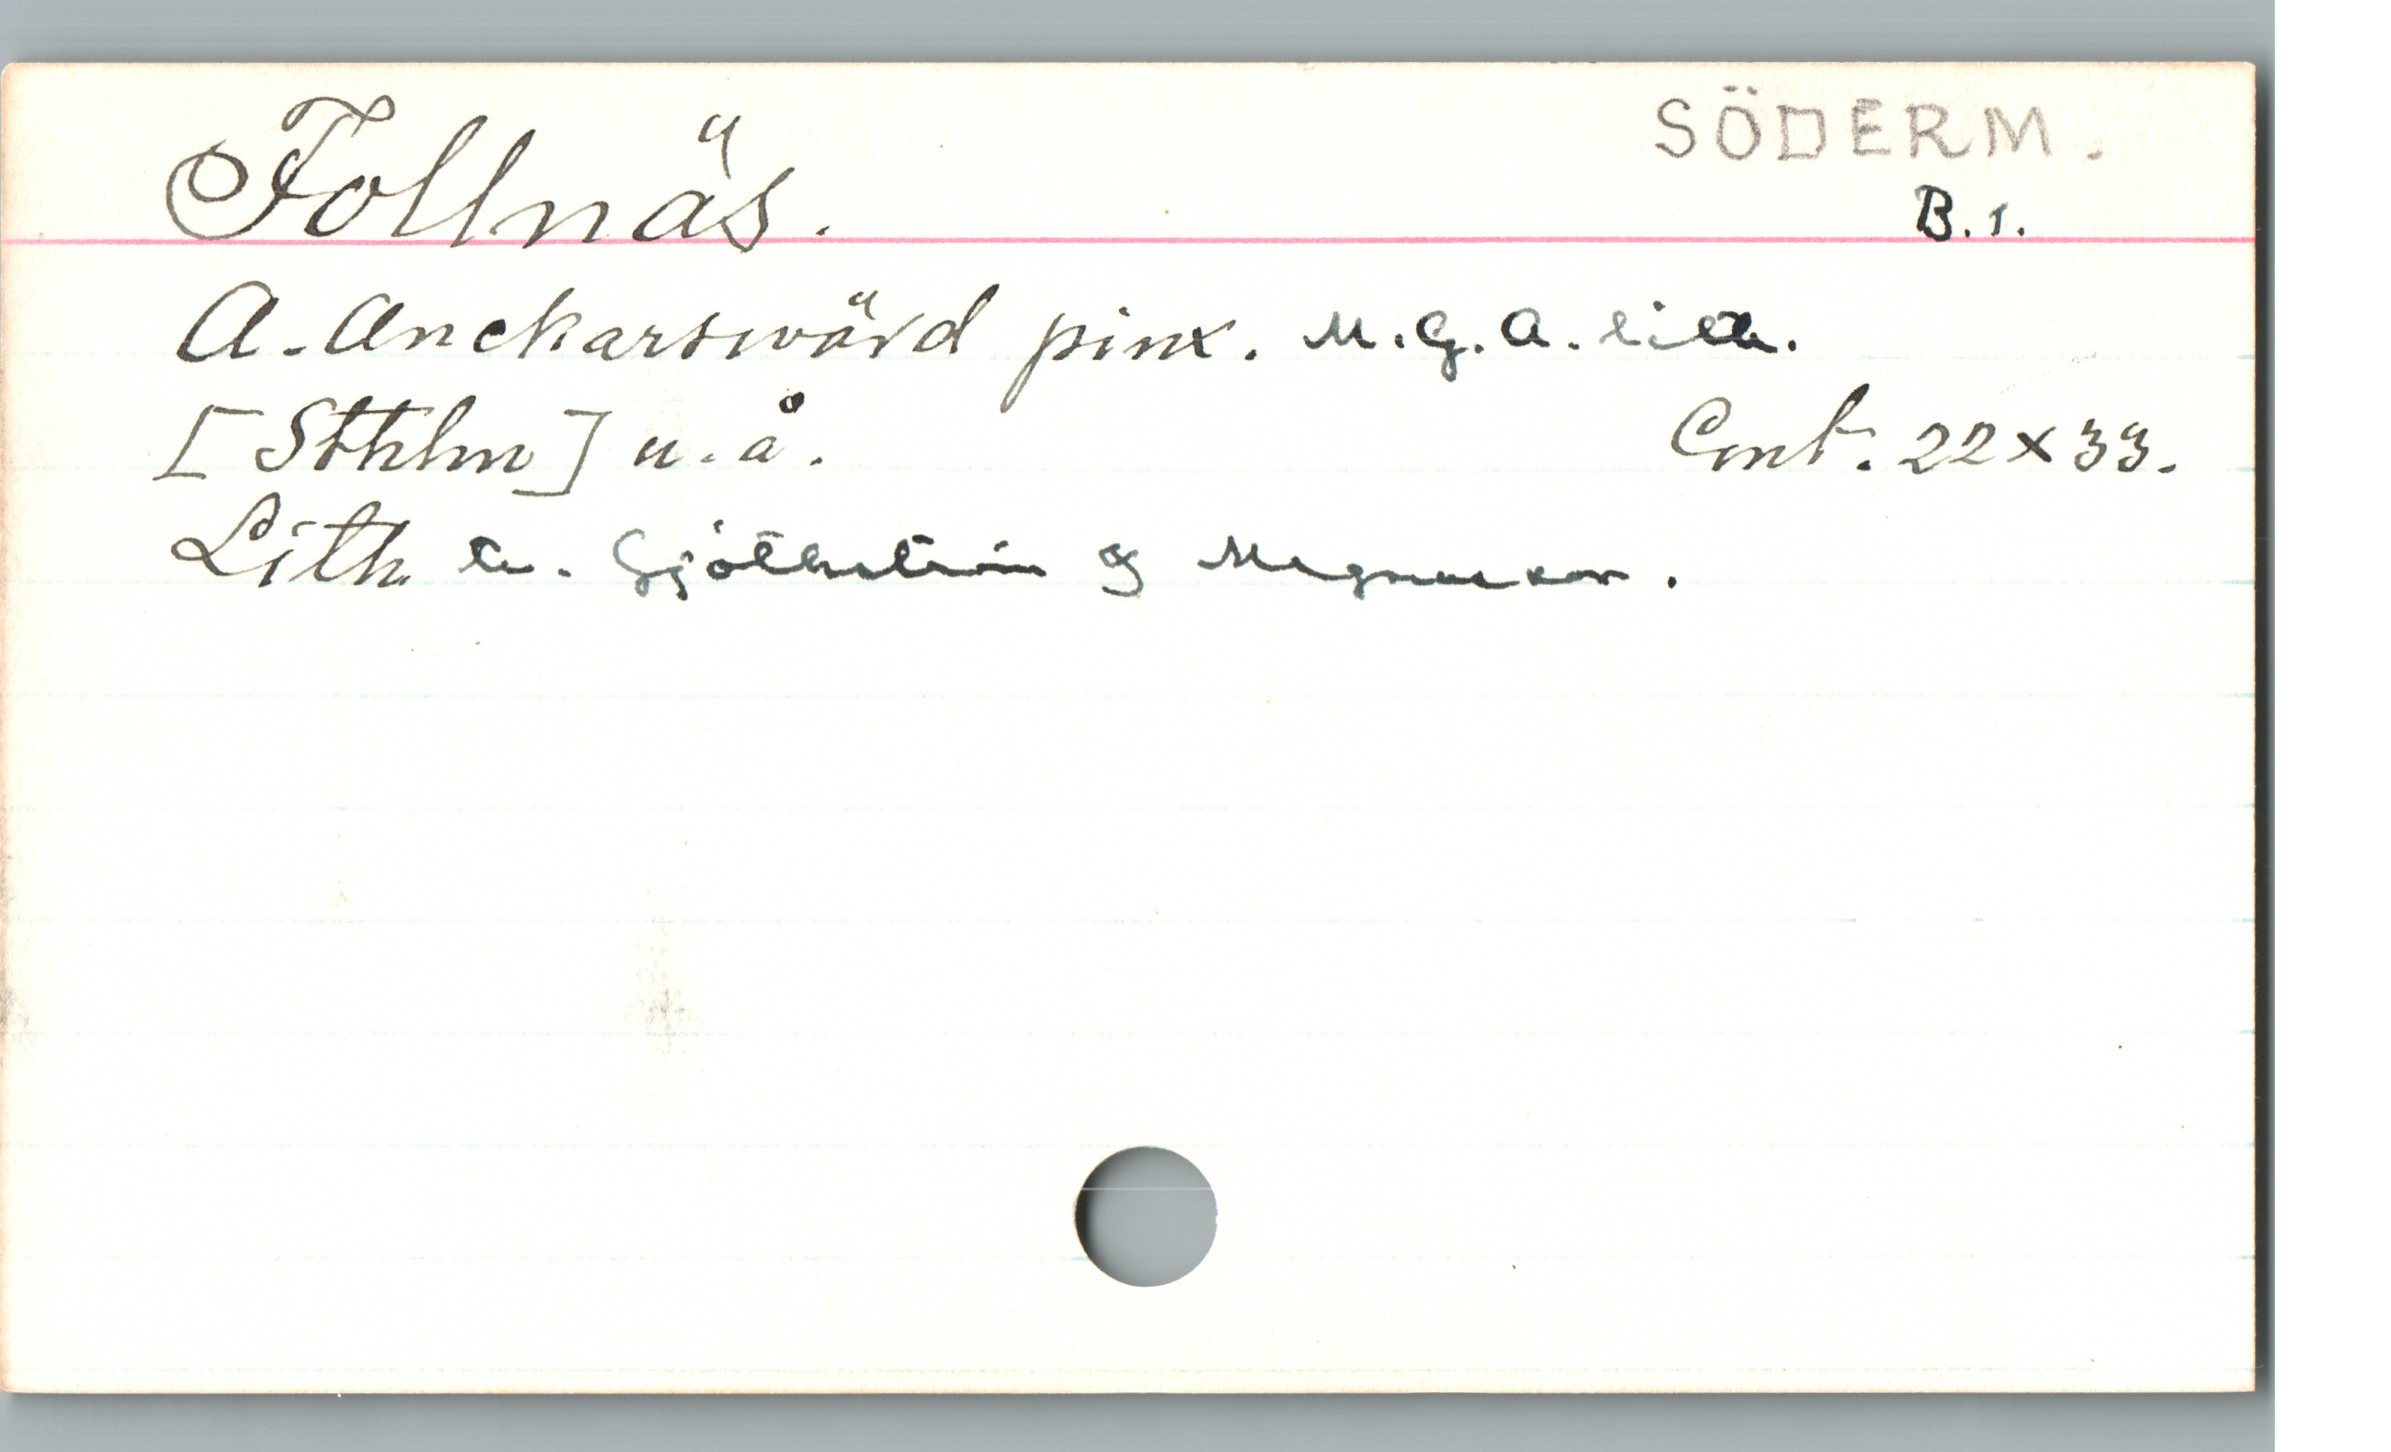 Follnäs.
SÖDERM.
B. 1.
A. Anckarswärd pinx. M. G. A. lith.
[Sthlm] u. å. Cmt. 22 x 33.
Lith. av. Gjöthström & Magnusson.